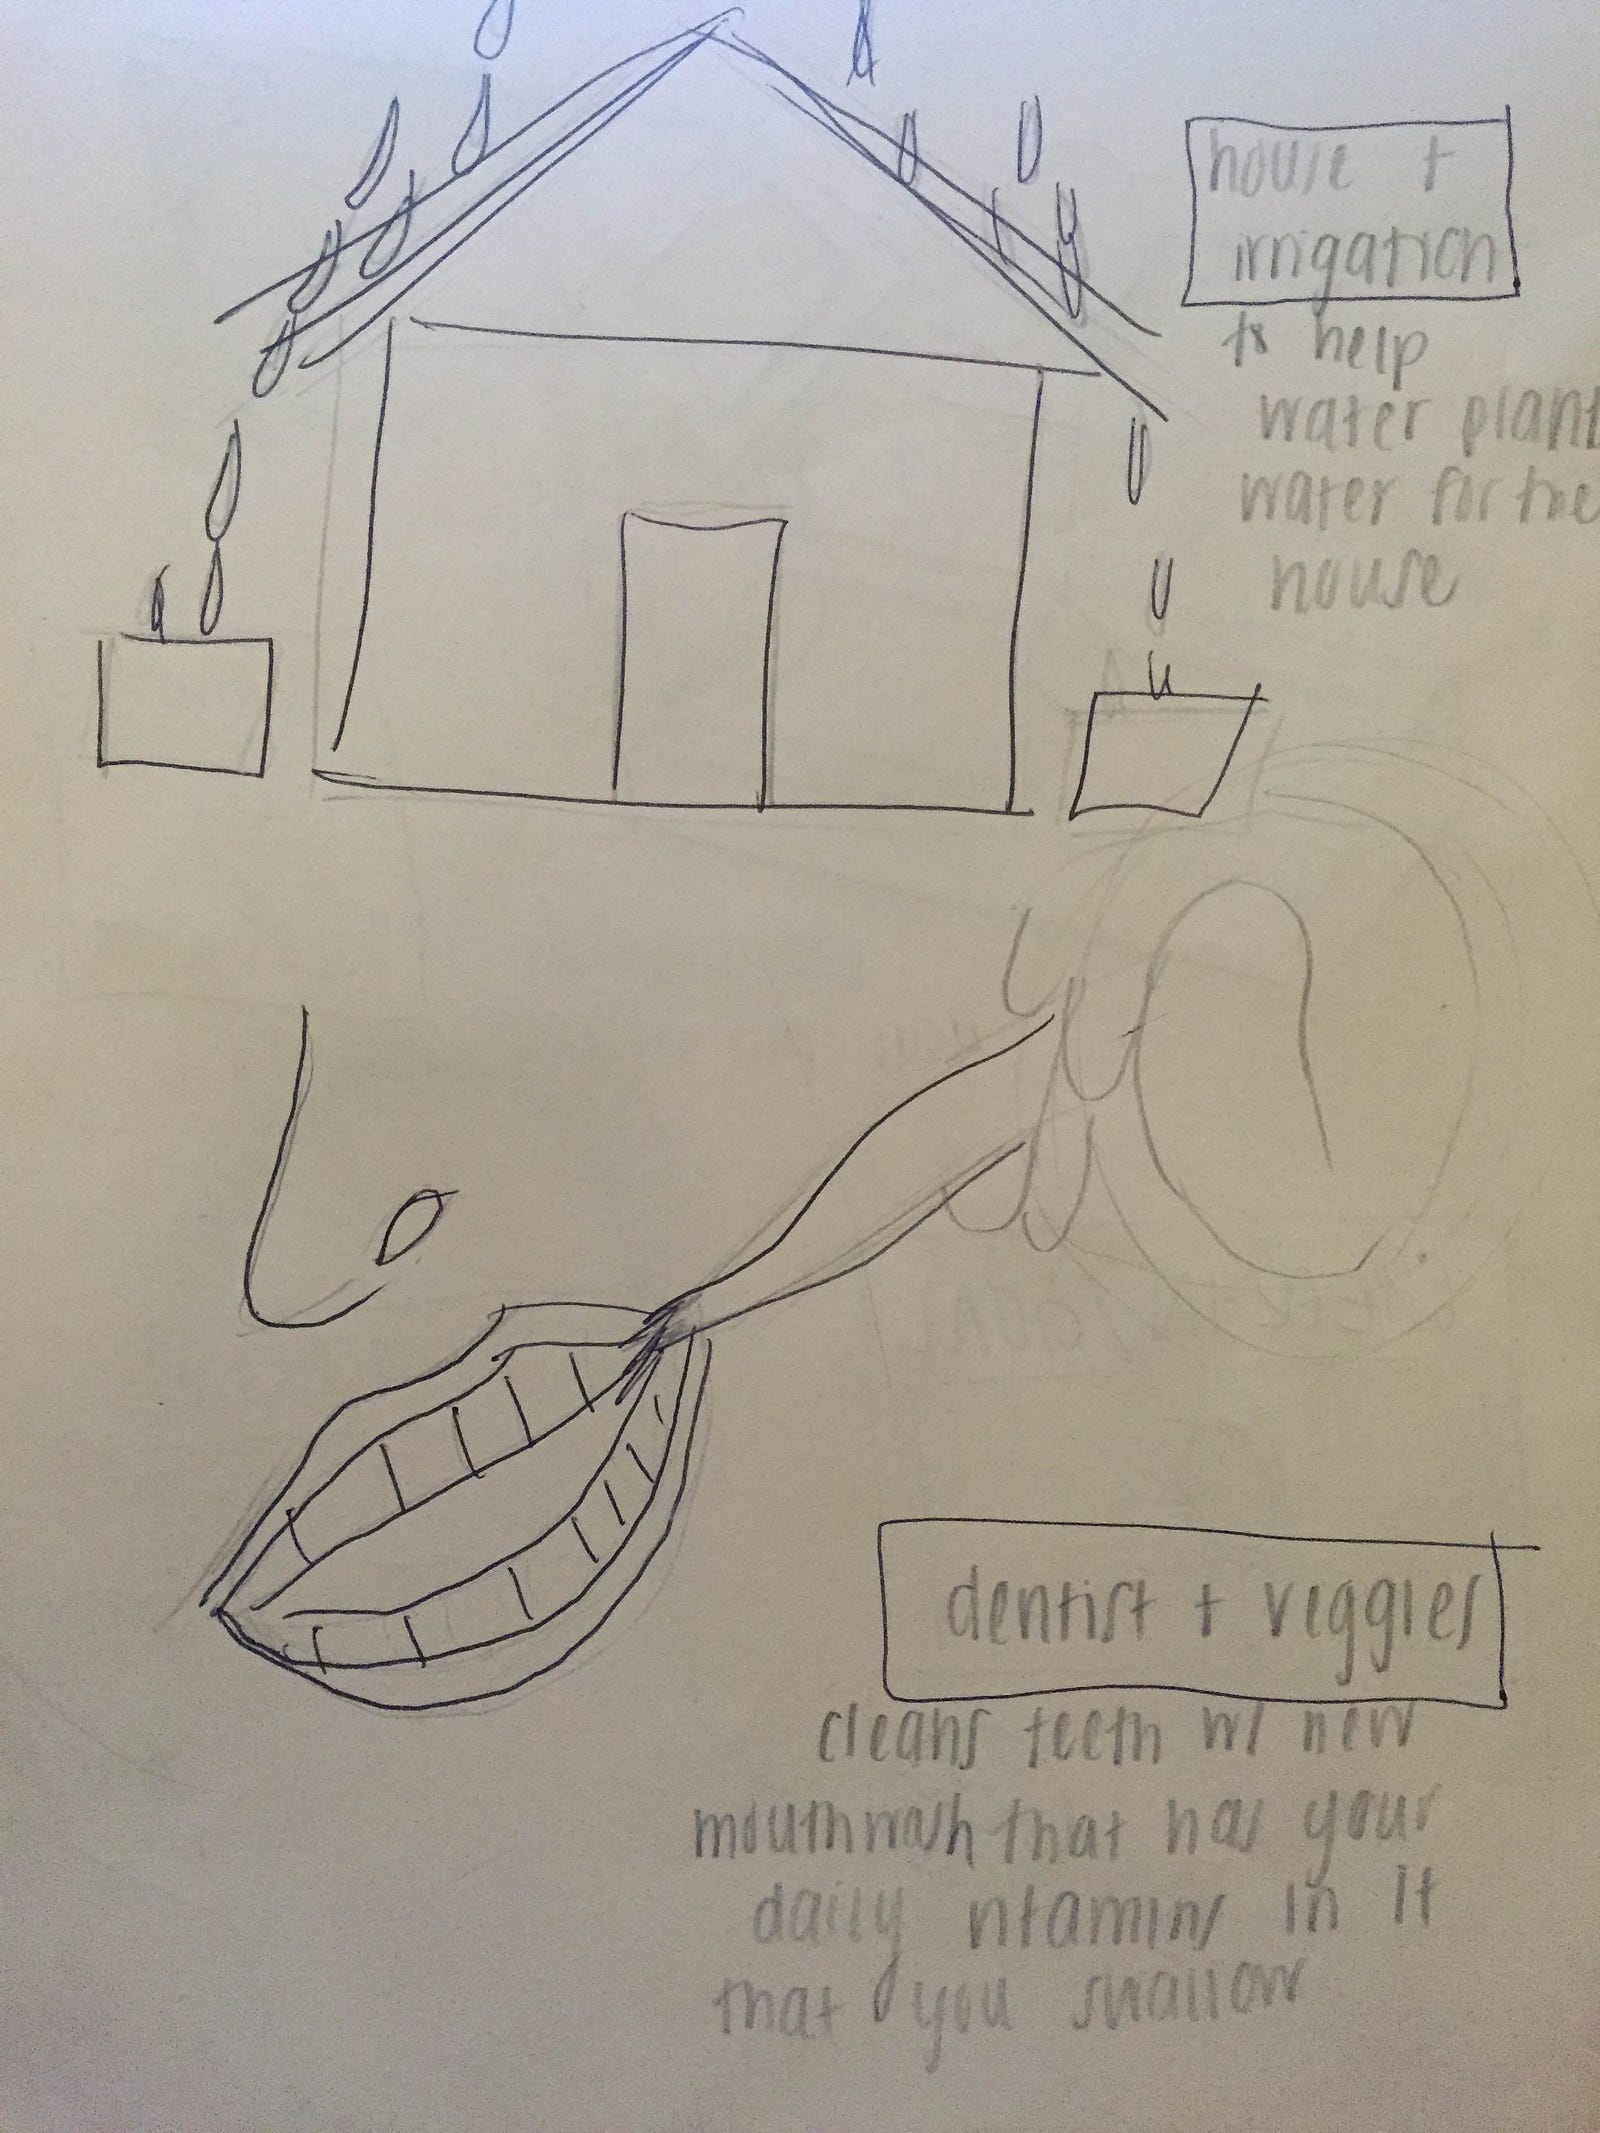 house +
irrigation
to help
water plant
water for the
house
dentist + veggies
cleans teeth w/ new
mouthwash that has your
daily vitamins in it
that you swallow